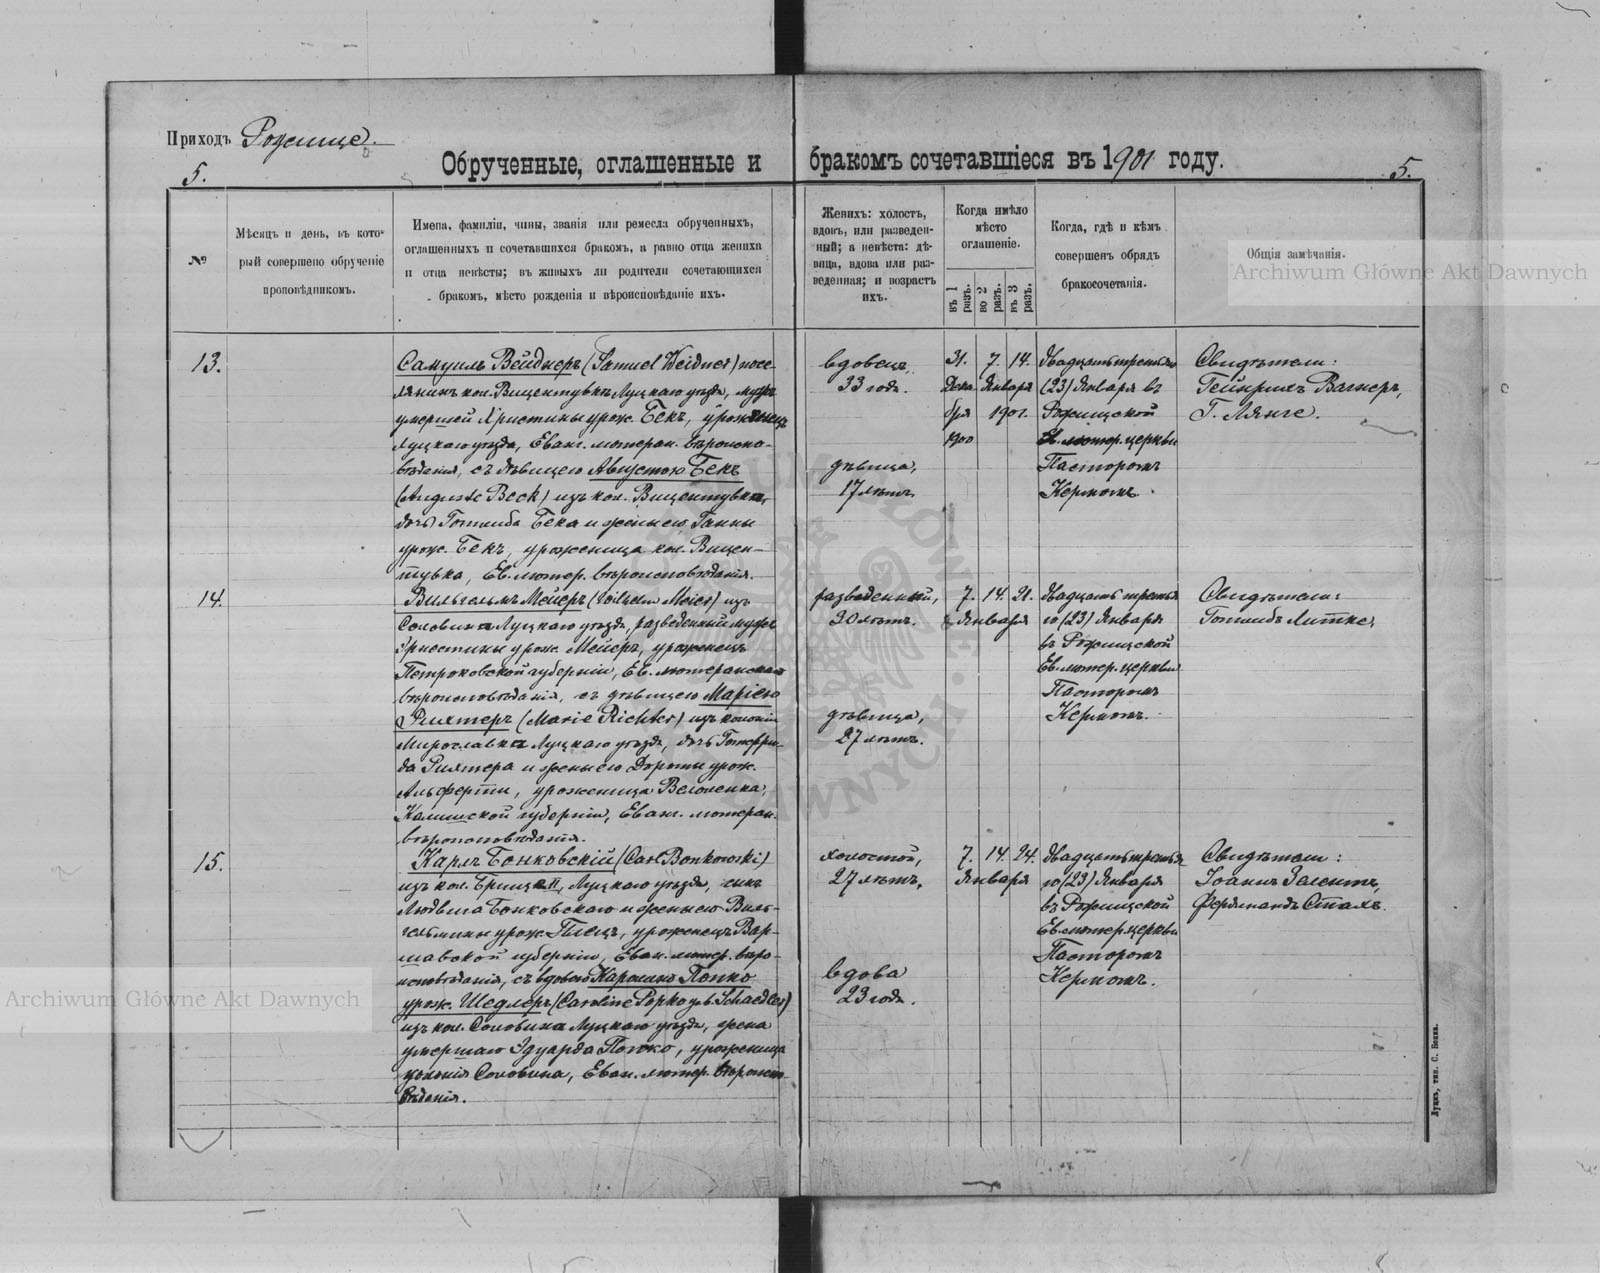 Приходъ Рожище.
5.
Обрученные, оглашенные и бракомъ сочетавшіеся въ 1901 году.
5.
№
Мѣсяцъ и день, въ кото-
рый совершено обрученіе
проповѣдникомъ.
Имена, фамиліи, чины, званія или ремесла обрученныхъ,
оглашенныхъ и сочетавшихся бракомъ, а равно отца жениха
и отца невѣсты; въ живыхъ ли родители сочетающихся
бракомъ, мѣсто рожденія и вѣроисповѣданіе ихъ.
Женихъ: холостъ,
вдовъ, или разведен-
ный; а невѣста: дѣ-
вица, вдова или раз-
веденная; и возрастъ
ихъ.
Когда имѣло
мѣсто
оглашеніе.
въ 1 разъ.
во 2 разъ.
въ 3 разъ.
Когда, гдѣ и кѣмъ
совершенъ обрядъ
бракосочетанія.
Общія замѣчанія.
Archiwum Główne Akt Dawnych
13.
Самуилъ Вейднеръ (Samuel Weidner) посе-
лянинъ кол. Вицентувкѣ Луцкаго уѣзда, мужъ
умершей Христины урож. Бекъ, уроженецъ
Луцкаго уѣзда, Еванг. лютеран. вѣроиспо-
вѣданія, съ дѣвицею Августою Бекъ
(Auguste Beck) изъ кол. Вицентувка,
дочь Готлиба Бека и жены его Ганны
урож. Бекъ, уроженица кол. Вицен-
тувка, Ев. лютер. вѣроисповѣданія.
вдовецъ
33 года.
дѣвица,
17 лѣтъ.
31. 7. 14.
Дека- Января
бря 1901.
1900
Двадцать третьяго
(23) Января въ
Рожищской
Ев. лютер. церкви
Пасторомъ
Кермомъ.
Свидѣтели:
Гейнрихъ Вагнеръ,
Г. Лянге.
14.
Вильгельмъ Мейеръ (Wilhelm Meier) изъ
Соловина Луцкаго уѣзда, разведенный мужъ
Христины урож. Мейеръ, уроженецъ
Петроковской губерніи, Ев. лютеранскаго
вѣроисповѣданія, съ дѣвицею Маріею
Рихтеръ (Marie Richter) изъ колоніи
Мирославка Луцкаго уѣзда, дочь Готфри-
да Рихтера и жены его Дороты урож.
Альфертъ, уроженица
Калишской губерніи, Еванг. лютеран.
вѣроисповѣданія.
разведенный,
30 лѣтъ.
дѣвица,
27 лѣтъ.
7. 14. 21.
Января
Двадцать третья-
го (23) Января
въ Рожищской
Ев. лютер. церкви
Пасторомъ
Кермомъ.
Свидѣтели:
Готлибъ Литке,
15.
Карлъ Бонковскій (Carl Bonkowski)
изъ кол. II, Луцкаго уѣзда, сынъ
Людвига Бонковскаго и жены его Виль-
гельмины урож. уроженецъ Вар-
шавской губерніи, Еван. лютер. вѣро-
исповѣданія, съ вдовою Каролина Попко
урож. Шедлеръ (Caroline Popko geb. Schaedler)
изъ кол. Соловина Луцкаго уѣзда, жена
умершаго Эдуарда Попко, уроженица
колоніи Соловина, Еван. лютер. вѣроиспо-
вѣданія.
холостой,
27 лѣтъ,
вдова
23 года.
7. 14. 24.
Января
Двадцать третья-
го (23) Января
въ Рожищской
Ев. лютер. церкви
Пасторомъ
Кермомъ.
Свидѣтели:
Іоаннъ Зелентъ,
Фердинандъ Сталь.
Archiwum Główne Akt Dawnych
Луцкъ, тип. С. Бенка.